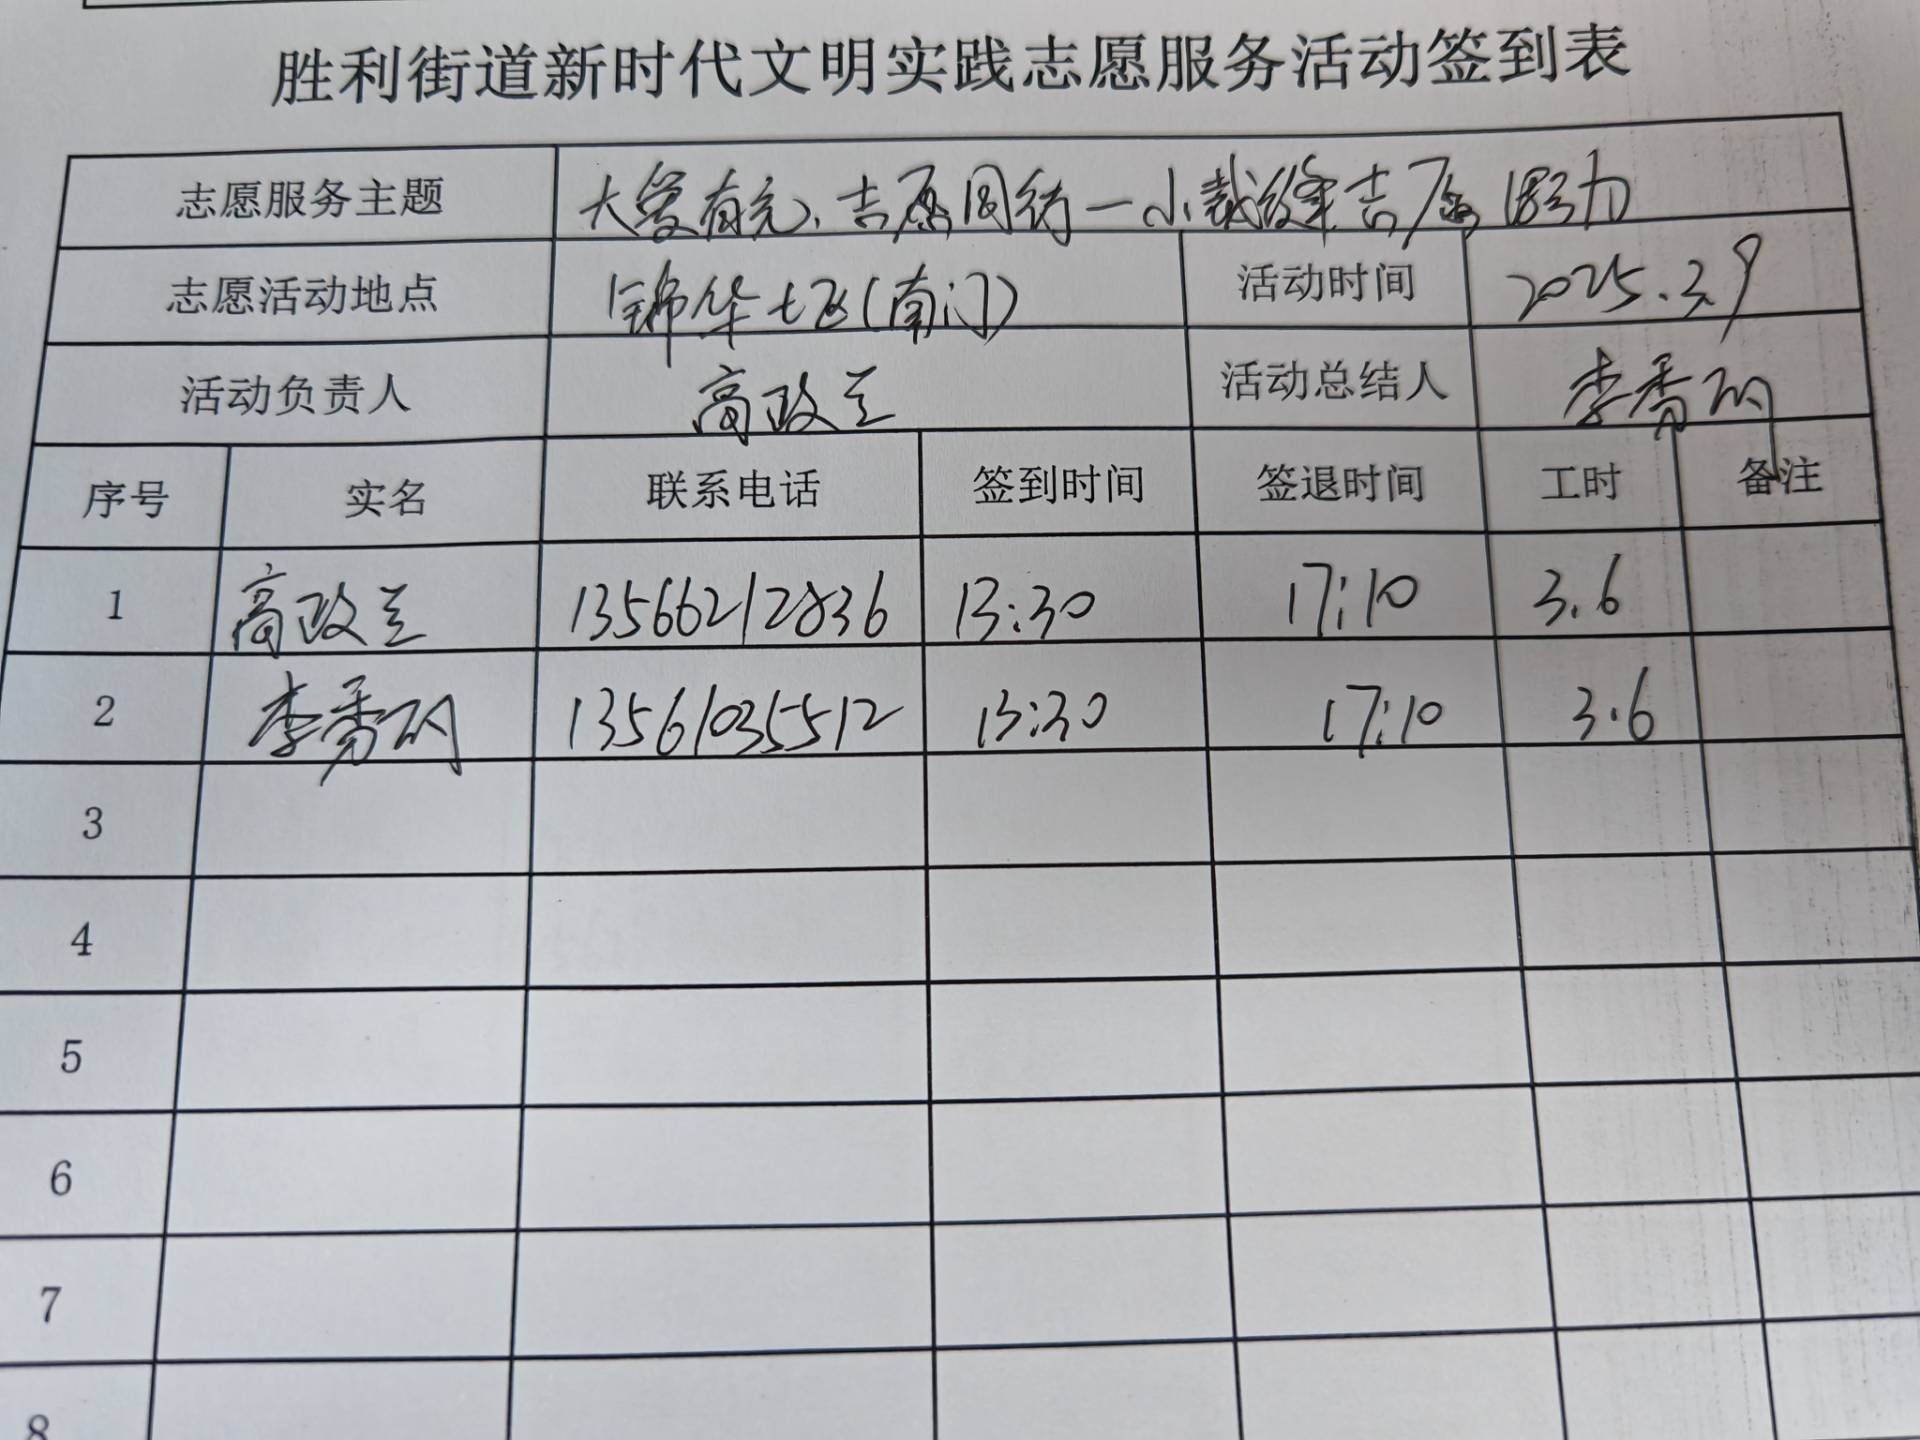 胜利街道新时代文明实践志愿服务活动签到表
志愿服务主题 大爱有元、志愿同行一小裁缝志愿服务
志愿活动地点 锦华七区(南门) 活动时间 2025.3.9
活动负责人 高政兰 活动总结人 李秀丽
序号 实名 联系电话 签到时间 签退时间 工时 备注
1 高政兰 13566212836 13:30 17:10 3.6
2 李秀丽 13561035512 13:30 17:10 3.6
3
4
5
6
7
8